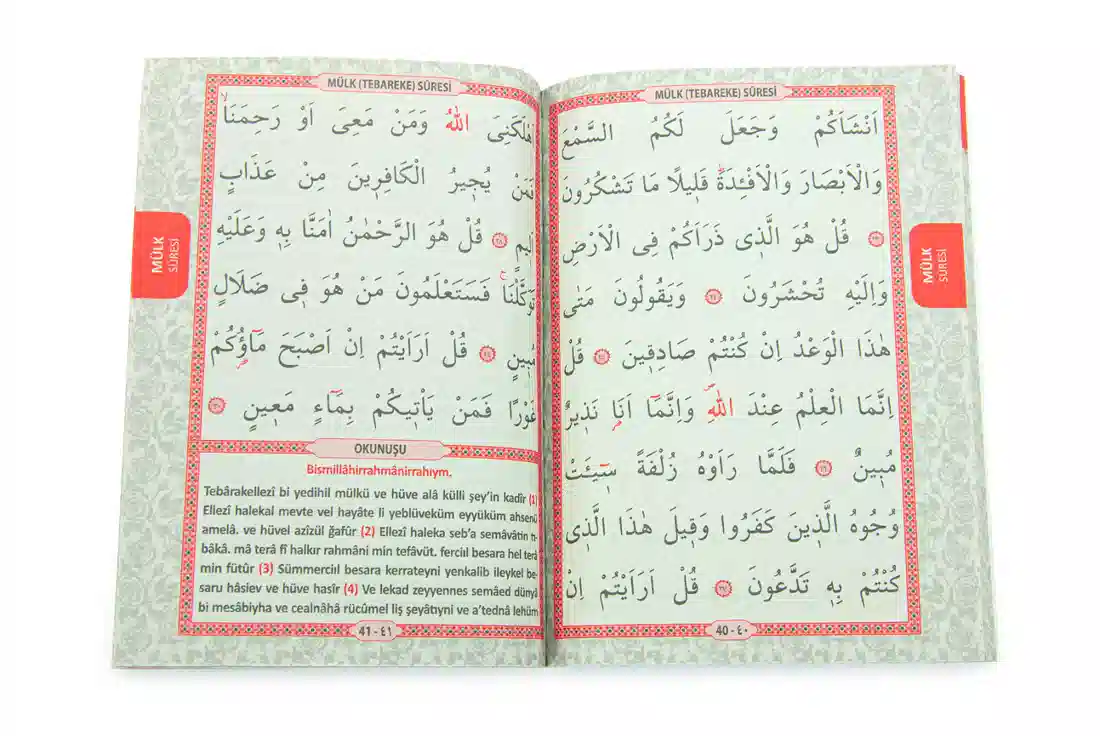 MÜLK (TEBAREKE) SÛRESİ
اَنْشَاَكُمْ وَجَعَلَ لَكُمُ السَّمْعَ
وَالْاَبْصَارَ وَالْاَفْـِٔدَةَ قَلِيلًا مَا تَشْكُرُونَ
﴿٢٣﴾ قُلْ هُوَ الَّذِى ذَرَاَكُمْ فِى الْاَرْضِ
وَاِلَيْهِ تُحْشَرُونَ ﴿٢٤﴾ وَيَقُولُونَ مَتٰى
هٰذَا الْوَعْدُ اِنْ كُنْتُمْ صَادِقِينَ ﴿٢٥﴾ قُلْ
اِنَّمَا الْعِلْمُ عِنْدَ اللّٰهِ وَاِنَّمَٓا اَنَا۬ نَذِيرٌ
مُبِينٌ ﴿٢٦﴾ فَلَمَّا رَاَوْهُ زُلْفَةً سِٓيـَٔتْ
وُجُوهُ الَّذِينَ كَفَرُوا وَقِيلَ هٰذَا الَّذِى
كُنْتُمْ بِهِ تَدَّعُونَ ﴿٢٧﴾ قُلْ اَرَاَيْتُمْ اِنْ
40 - ٤٠
MÜLK
SÛRESİ
MÜLK (TEBAREKE) SÛRESİ
اَهْلَكَنِىَ اللّٰهُ وَمَنْ مَعِىَ اَوْ رَحِمَنَاۙ
فَمَنْ يُجِيرُ الْكَافِرِينَ مِنْ عَذَابٍ
اَلِيمٍ ﴿٢٨﴾ قُلْ هُوَ الرَّحْمٰنُ اٰمَنَّا بِهِ وَعَلَيْهِ
تَوَكَّلْنَاۚ فَسَتَعْلَمُونَ مَنْ هُوَ فِى ضَلَالٍ
مُبِينٍ ﴿٢٩﴾ قُلْ اَرَاَيْتُمْ اِنْ اَصْبَحَ مَٓاؤُ۬كُمْ
غَوْرًا فَمَنْ يَاْتِيكُمْ بِمَٓاءٍ مَعِينٍ ﴿٣٠﴾
OKUNUŞU
Bismillâhirrahmânirrahıym.
Tebârakellezî bi yedihil mülkü ve hüve alâ külli şey'in kadîr (1)
Ellezî halekal mevte vel hayâte li yeblüveküm eyyüküm ahsenü
amelâ. ve hüvel azîzül ğafûr (2) Ellezî haleka seb'a semâvâtin tı-
bâkâ. mâ terâ fî halkır rahmâni min tefâvüt. ferciıl besara hel terâ
min fütûr (3) Sümmerciıl besara kerrateyni yenkalib ileykel be-
saru hâsiev ve hüve hasîr (4) Ve lekad zeyyennes semâed dünyâ
bi mesâbiyha ve cealnâhâ rücûmel liş şeyâtıyni ve a'tednâ lehüm
41 - ٤١
MÜLK
SÛRESİ